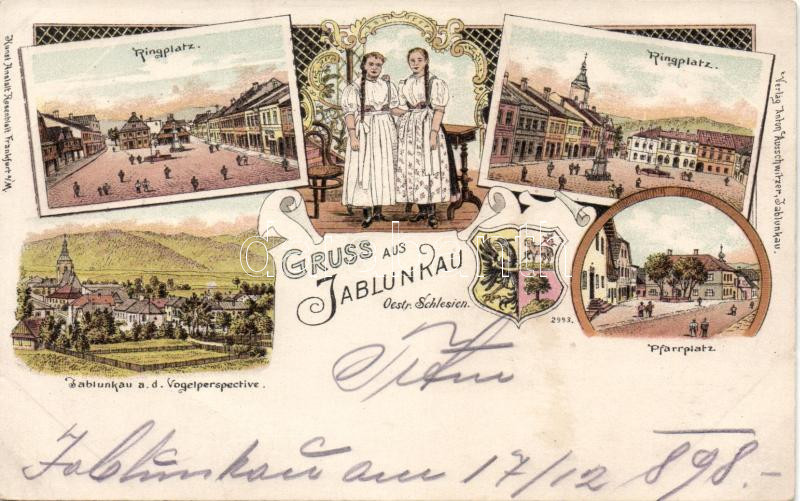 Ringplatz.
Ringplatz.
Kunst Anstalt Rosenblatt Frankfurt a/M
Verlag Anton Ausschwitzer, Jablunkau.
GRUSS AUS
JABLUNKAU
Oestr. Schlesien.
2993.
Jablunkau a. d. Vogelperspective.
Pfarrplatz
Jablunkau am 17/12 898.